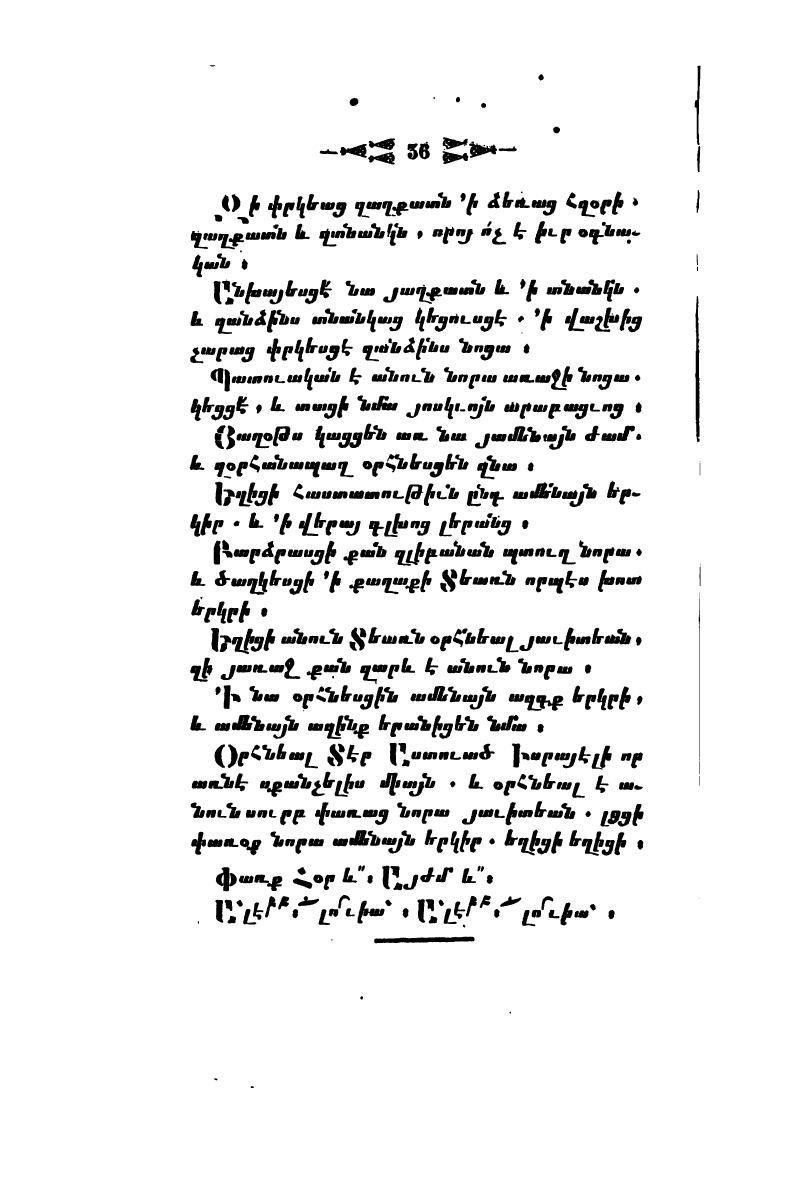 36
Զի փրկեաց զաղքատն ՚ի ձեռաց հզօրի ․
զաղքատն և զտնանկն , որոյ ո՛չ է իւր օգնա֊
կան ։
Ընխայեսցէ նա յաղքատն և ՚ի տնանկն ․
և զանձինս տնանկաց կեցուսցէ ․ ՚ի վաշխից
չարաց փրկեսցէ զանձինս նոցա ։
Պատուական է անուն նորա առաջի նոցա ․
կեցցէ , և տացի նմա յոսկւոյն արաբացւոց ։
Յաղօթս կացցեն առ նա յամենայն ժամ ․
և զօրհանապազ օրհնեսցեն զնա ։
Եղիցի հաստատութիւն ընդ ամենայն եր֊
կիր ․ և ՚ի վերայ գլխոց լերանց ։
Բարձրասցի քան զլիբանան պտուղ նորա ․
և ծաղկեսցի ՚ի քաղաքի Տեառն որպէս խոտ
երկրի ։
Եղիցի անուն Տեառն օրհնեալ յաւիտեան ,
զի յառաջ քան զարև է անուն նորա ։
՚Ի նա օրհնեսցին ամենայն ազգք երկրի ,
և ամենայն ազինք երանիցեն նմա ։
Օրհնեալ Տէր Աստուած Իսրայէլի որ
առնէ սքանչելիս միայն ․ և օրհնեալ է ա֊
նուն սուրբ փառաց նորա յաւիտեան ․ լցցի
փառօք նորա ամենայն երկիր ․ եղիցի եղիցի ։
Փառք Հօր և՟ ։ Այժմ և՟ ։
Ա՛լէ ։ լուիա՝ ։ Ա՛լէ ։ լուիա՝ ։